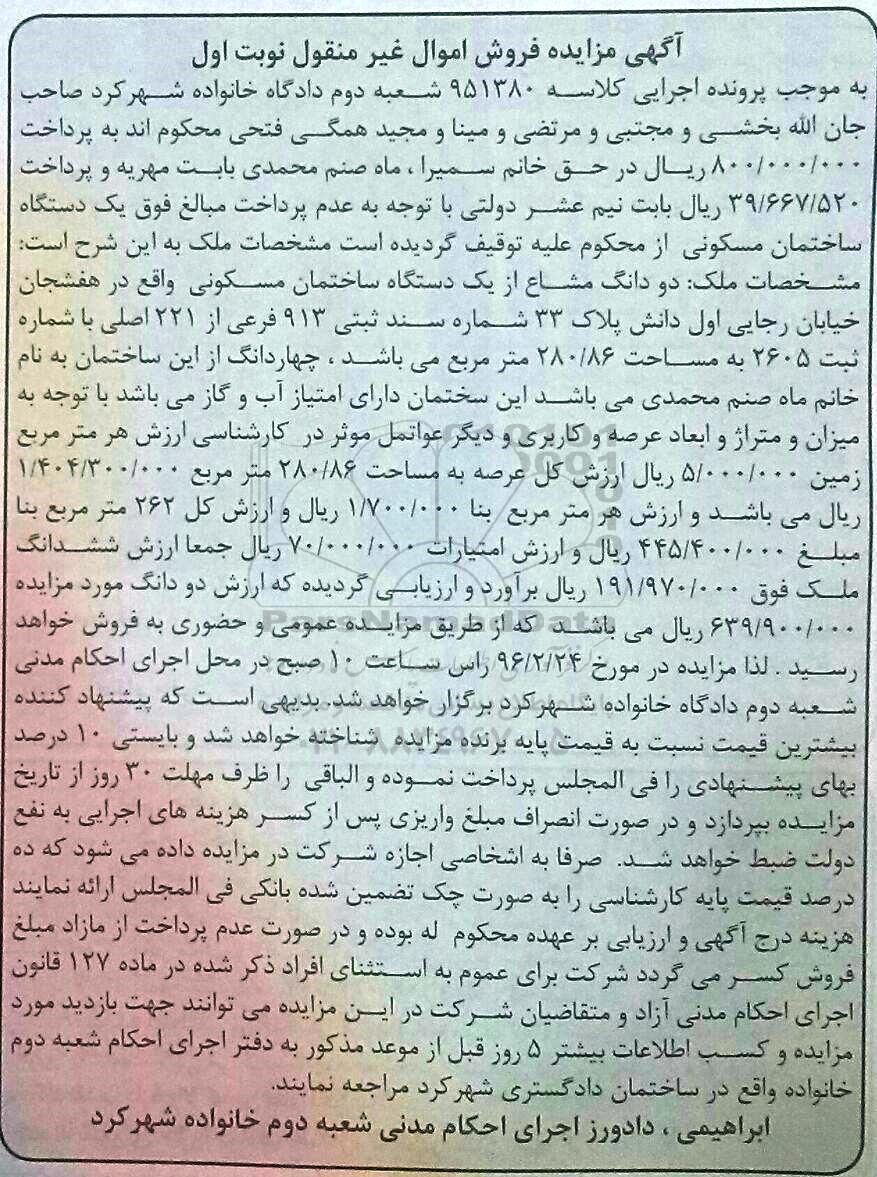 آگهی مزایده فروش اموال غیر منقول نوبت اول
به موجب پرونده اجرایی کلاسه ۹۵۱۳۸۰ شعبه دوم دادگاه خانواده شهرکرد صاحب
جان الله بخشی و مجتبی و مرتضی و مینا و مجید همگی فتحی محکوم اند به پرداخت
۸۰۰/۰۰۰/۰۰۰ ریال در حق خانم سمیرا ، ماه صنم محمدی بابت مهریه و پرداخت
۳۹/۶۶۷/۵۲۰ ریال بابت نیم عشر دولتی با توجه به عدم پرداخت مبالغ فوق یک دستگاه
ساختمان مسکونی از محکوم علیه توقیف گردیده است مشخصات ملک به این شرح است:
مشخصات ملک: دو دانگ مشاع از یک دستگاه ساختمان مسکونی واقع در هفشجان
خیابان رجایی اول دانش پلاک ۳۳ شماره سند ثبتی ۹۱۳ فرعی از ۲۲۱ اصلی با شماره
ثبت ۲۶۰۵ به مساحت ۲۸۰/۸۶ متر مربع می باشد ، چهاردانگ از این ساختمان به نام
خانم ماه صنم محمدی می باشد این سختمان دارای امتیاز آب و گاز می باشد با توجه به
میزان و متراژ و ابعاد عرصه و کاربری و دیگر عواتمل موثر در کارشناسی ارزش هر متر مربع
زمین ۵/۰۰۰/۰۰۰ ریال ارزش کل عرصه به مساحت ۲۸۰/۸۶ متر مربع ۱/۴۰۴/۳۰۰/۰۰۰
ریال می باشد و ارزش هر متر مربع بنا ۱/۷۰۰/۰۰۰ ریال و ارزش کل ۲۶۲ متر مربع بنا
مبلغ ۴۴۵/۴۰۰/۰۰۰ ریال و ارزش امتیازات ۷۰/۰۰۰/۰۰۰ ریال جمعا ارزش ششدانگ
ملک فوق ۱۹۱/۹۷۰/۰۰۰ ریال برآورد و ارزیابی گردیده که ارزش دو دانگ مورد مزایده
۶۳۹/۹۰۰/۰۰۰ ریال می باشد که از طریق مزایده عمومی و حضوری به فروش خواهد
رسید . لذا مزایده در مورخ ۹۶/۲/۲۴ راس ساعت ۱۰ صبح در محل اجرای احکام مدنی
شعبه دوم دادگاه خانواده شهرکرد برگزار خواهد شد. بدیهی است که پیشنهاد کننده
بیشترین قیمت نسبت به قیمت پایه برنده مزایده شناخته خواهد شد و بایستی ۱۰ درصد
بهای پیشنهادی را فی المجلس پرداخت نموده و الباقی را ظرف مهلت ۳۰ روز از تاریخ
مزایده بپردازد و در صورت انصراف مبلغ واریزی پس از کسر هزینه های اجرایی به نفع
دولت ضبط خواهد شد. صرفا به اشخاصی اجازه شرکت در مزایده داده می شود که ده
درصد قیمت پایه کارشناسی را به صورت چک تضمین شده بانکی فی المجلس ارائه نمایند
هزینه درج آگهی و ارزیابی بر عهده محکوم له بوده و در صورت عدم پرداخت از مازاد مبلغ
فروش کسر می گردد شرکت برای عموم به استثنای افراد ذکر شده در ماده ۱۲۷ قانون
اجرای احکام مدنی آزاد و متقاضیان شرکت در این مزایده می توانند جهت بازدید مورد
مزایده و کسب اطلاعات بیشتر ۵ روز قبل از موعد مذکور به دفتر اجرای احکام شعبه دوم
خانواده واقع در ساختمان دادگستری شهرکرد مراجعه نمایند.
ابراهیمی ، دادورز اجرای احکام مدنی شعبه دوم خانواده شهرکرد